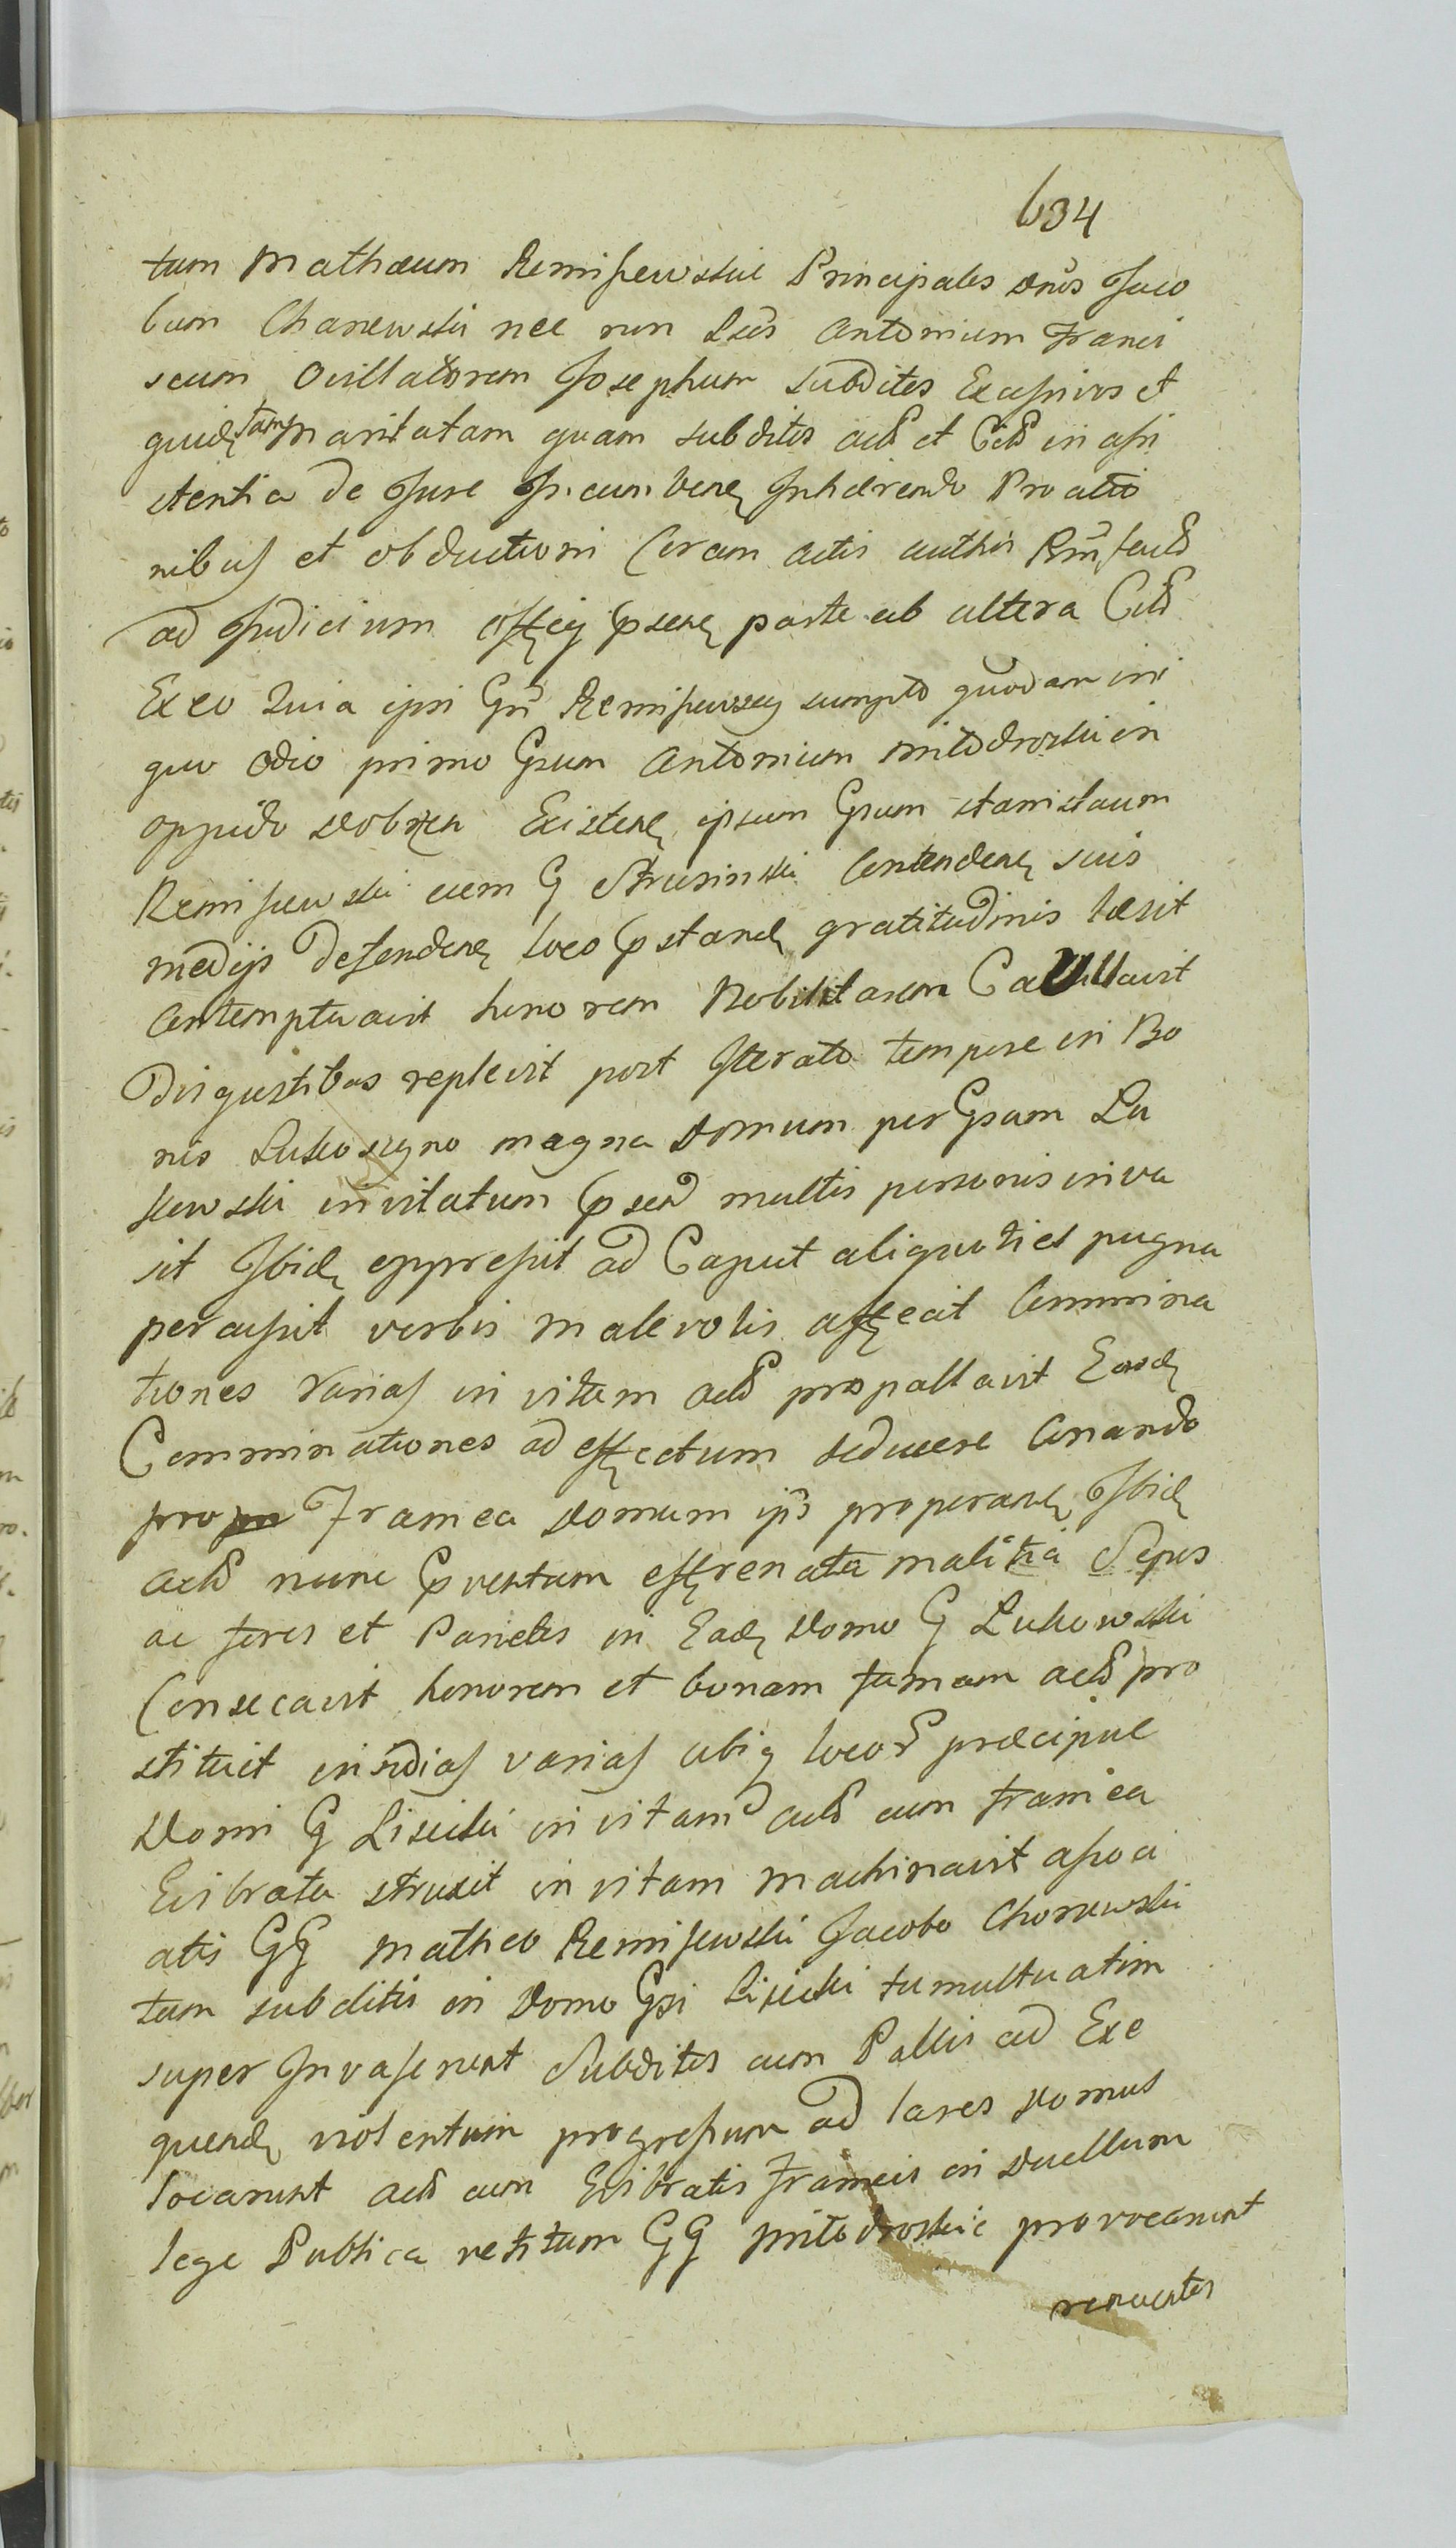 634
tum Mathæum Remiszewskie Principales Dnos Jaco
bum Chanewski nec non Lsos Antonium Franci
scum Ovillatorem Josephum Subditos Excessivos et
quidem tam maritatam quam subditis et in assi
stentia de Jure Incumben Inhærendo Pro
nibus et obductioni Coram actis
ad Judicium parte ab altera
Ex eo Quia ipsi Gsi sumpto quodam ini
quo odio primo Gsum Antonium Mitodroski in
oppido Dobrzen Existen ipsum Gsum Stanislaum
Remiszewski cum G Strusinski Contenden suis
medijs defenden loco pstand gratitudinis læsit
Contemptuavit honorem Nobilitarem Cavillavit
Disgustibus replevit post Iterato tempore in Bo
nis magna Domum per Gsum Lu
kowski invitatum multis personis inva
sit Ibid oppressit ad Caput aliquoties pugna
percussit verbis malevolis affecit Commina
tiones varias in vitam propallavit Easd
Comminationes ad effectum deducere Conando
pro Framea Domum properand Ibid
nunc effrenata malitia Sepes
ac fores et Parietes in Ead Domo G Lukowski
Consecavit honorem et bonam famam pro
stituit insidias varias ubiq præcipue
Domi G Lisicki in vitam cum framea
Evibrata struxit in vitam machinavit associ
atis GG Matheo Remiszewski Jacobo Chonewski
tum subditis in Domo Gsi Lisicki tumultuatim
super Invaserunt Subditos cum Pallis ad Exe
quend violentum progressum ad lares Domus
locarunt cum Evibratis frameis in Duellum
lege Publica vetitum GG Mitodroskie provocarunt
renuentes